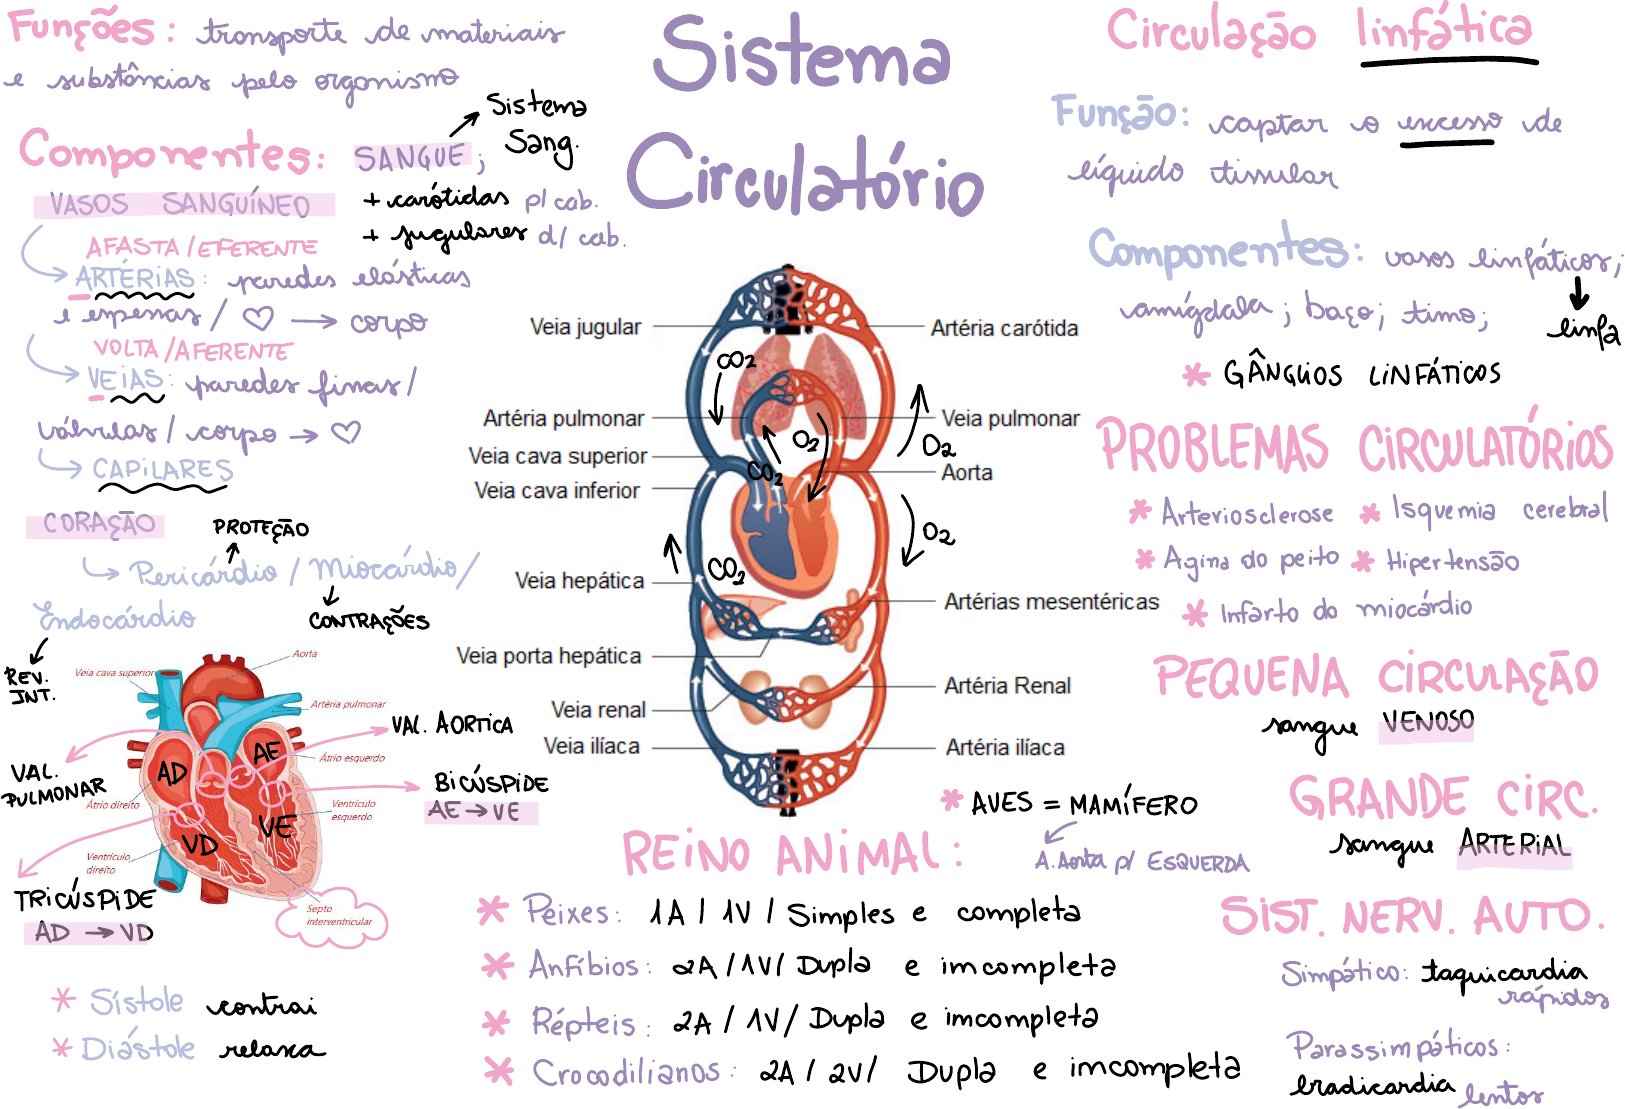 Sistema
Circulatório
Funções: transporte de materiais
e substâncias pelo organismo
Componentes: SANGUE; → Sistema
Sang.
VASOS SANGUÍNEO
+ carótidas p/ cab.
+ jugulares d/ cab.
AFASTA / EFERENTE
→ ARTÉRIAS: paredes elásticas
e espessas / ♡ → corpo
VOLTA / AFERENTE
→ VEIAS: paredes finas /
válvulas / corpo → ♡
→ CAPILARES
CORAÇÃO
PROTEÇÃO
→ Pericárdio / Miocárdio /
Endocárdio
CONTRAÇÕES
REV.
INT.
Veia cava superior
Aorta
Artéria pulmonar
VAL. AORTICA
Átrio esquerdo
VAL.
PULMONAR
AD
AE
BICÚSPIDE
AE → VE
Átrio direito
Ventrículo
esquerdo
VD
VE
Ventrículo
direito
TRICÚSPIDE
AD → VD
Septo
interventricular
* Sístole contrai
* Diástole relaxa
Veia jugular
Artéria carótida
CO2
Artéria pulmonar
Veia pulmonar
O2
O2
Veia cava superior
CO2
Aorta
Veia cava inferior
O2
Veia hepática
CO2
Artérias mesentéricas
Veia porta hepática
Artéria Renal
Veia renal
Veia ilíaca
Artéria ilíaca
* AVES = MAMÍFERO
A. Aorta p/ ESQUERDA
REINO ANIMAL:
* Peixes: 1A / 1V / Simples e completa
* Anfíbios: 2A / 1V / Dupla e imcompleta
* Répteis: 2A / 1V / Dupla e imcompleta
* Crocodilianos: 2A / 2V / Dupla e imcompleta
Circulação linfática
Função: captar o excesso de
líquido tissular
Componentes: vasos linfáticos;
linfa
amígdala; baço; timo;
* GÂNGLIOS LINFÁTICOS
PROBLEMAS CIRCULATÓRIOS
* Arteriosclerose * Isquemia cerebral
* Agina do peito * Hipertensão
* Infarto do miocárdio
PEQUENA CIRCULAÇÃO
sangue VENOSO
GRANDE CIRC.
sangue ARTERIAL
SIST. NERV. AUTO.
Simpático: taquicardia
rápidos
Parassimpáticos:
bradicardia lentos